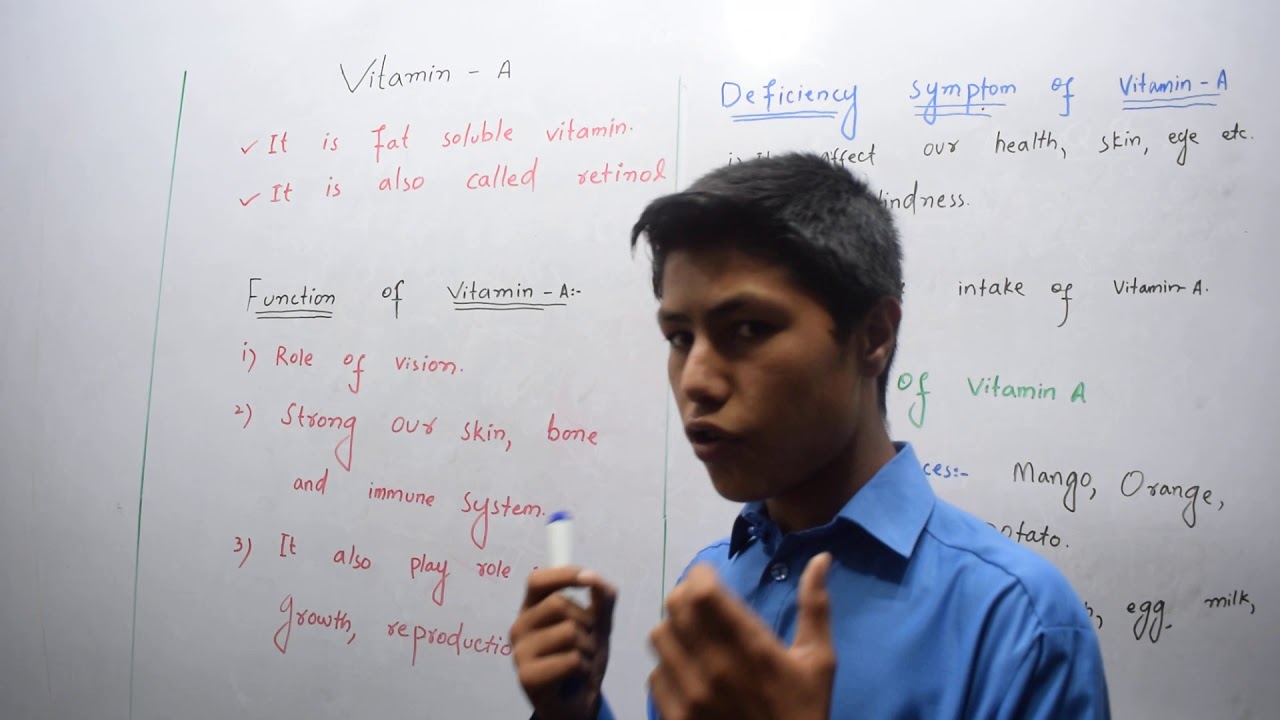 Vitamin - A
✓ It is fat soluble vitamin.
✓ It is also called retinol
Function of Vitamin - A:-
i) Role of vision.
2) Strong our skin, bone
and immune system.
3) It also play role
Growth, reproductio
Deficiency symptom of Vitamin - A
our health, skin, eye etc.
indness.
intake of Vitamin-A.
of Vitamin A
ces:- Mango, Orange,
otato.
egg milk,